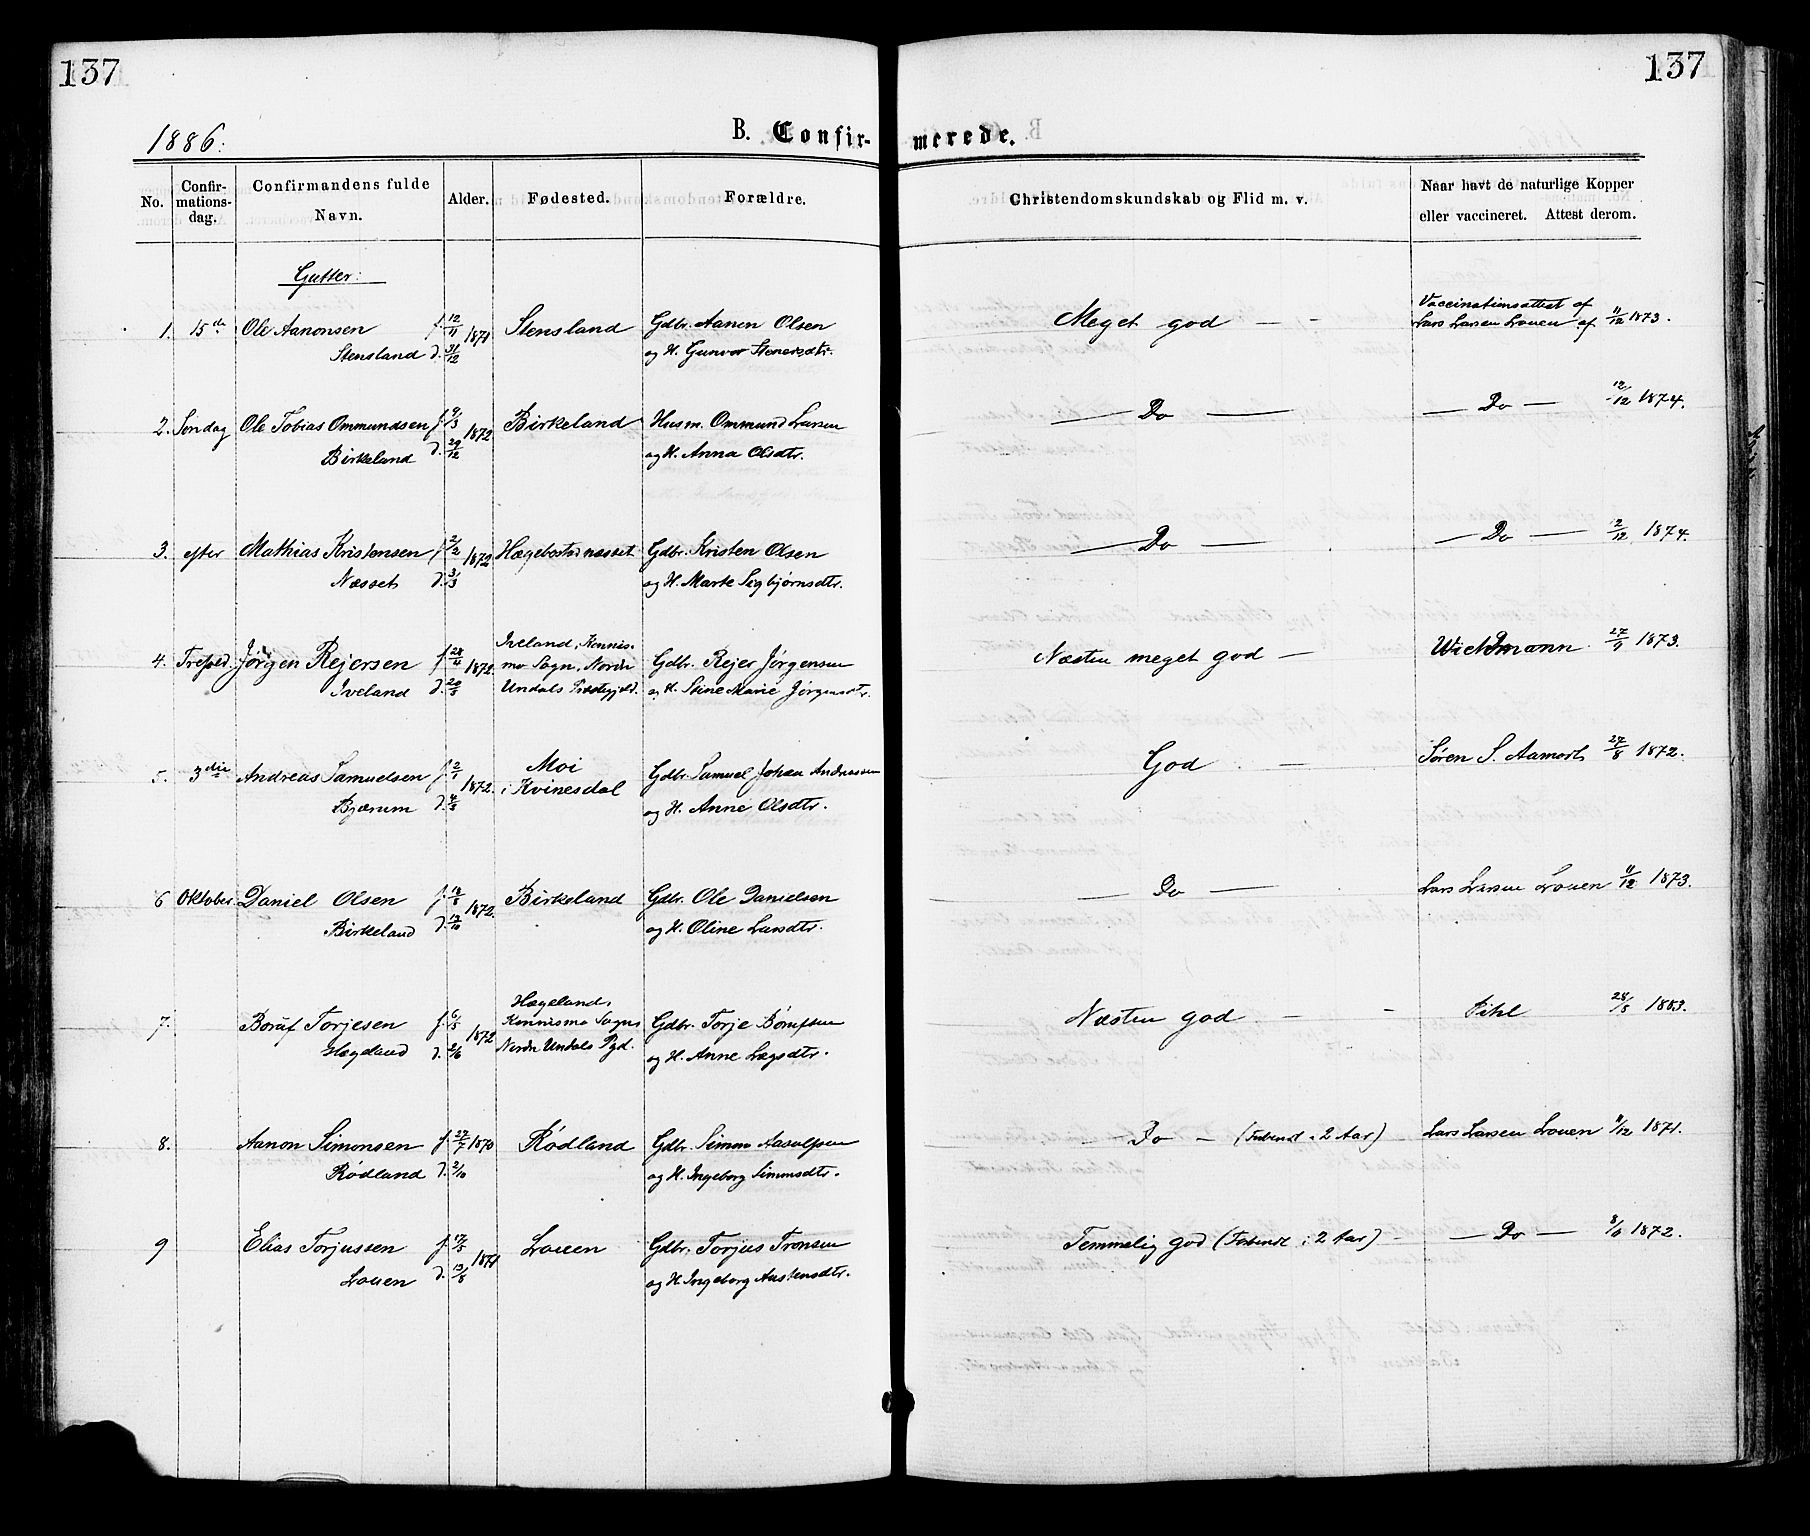 137
137
1886:
B. Confir-
merede.
No.
Confir-
mations-
dag.
Confirmandens fulde
Navn.
Alder.
Fødested.
Forældre.
Christendomskundskab og Flid m. v.
Naar havt de naturlige Kopper
eller vaccineret. Attest derom.
Gutter:
1. 15de Ole Aanonsen f. 12/11 1871 Stensland Gdbr. Aanen Olsen Meget god — - Vaccinationsattest af
Lars Larsen Louen af 11/12 1873.
Stensland d. 31/12 og H. Gunvor Stenersdtr.
2. Søndag Ole Tobias Ommundsen f. 9/3 1872 Birkeland Husm. Ommund Larsen — Do — — Do — 12/12 1874.
Birkeland d. 29/12 og H. Anna Olsdtr.
3. efter Mathias Kristensen f. 2/2 1872 Hægebostadnæsset Gdbr. Kristen Olsen — Do — — Do — 2/12 1874.
Næsset d. 3/3 og H. Marte Sigbjørnsdtr.
4. Trefold. Jørgen Rejersen f. 28/4 1872. Iveland, Konnis-
mo Sogn, Nordr
Undals Præstegjeld. Gdbr. Rejer Jørgensen Næsten meget god — Wichmann. 27/9 1873.
Iveland d. 20/5 og H. Stine Marie Jørgensdtr.
5. 3die Andreas Samuelsen f. 2/1 1872. Moi
i Kvinesdal Gdbr. Samuel Johan Andreassen God — Søren S. Aamodt 27/8 1872.
Bjærum d. 4/2 og H. Anne Olsdtr.
6 Oktober. Daniel Olsen f. 18/8 1872. Birkeland Gdbr. Ole Danielsen — Do — Lars Larsen Louen 11/12 1873.
Birkeland d. 13/10 og H. Oline Larsdtr.
7. Boruf Torjesen f. 6/5 1872 Hægeland,
Konnismo Sogn,
Nordr Undals Pgd. Gdbr. Torje Børufsen Næsten god — - Pihl 28/8 1883.
Hægeland d. 2/6 og H. Anne Lagsdtr.
8. Aanon Simonsen f. 27/7 1870 Rødland Gdbr. Simon Aasulfsen - Do - (Forberedt i 2 Aar) - Lars Larsen Louen 11/12 1871.
Rødland d. 2/10 og H. Ingeborg Simonsdtr.
9 Elias Torjussen f. 17/5 1871 Louen Gdbr. Torjus Tronsen Temmelig god (Forberedt i 2 Aar) - — Do — 8/10 1872.
Louen d. 13/8 og H. Ingeborg Austensdtr.